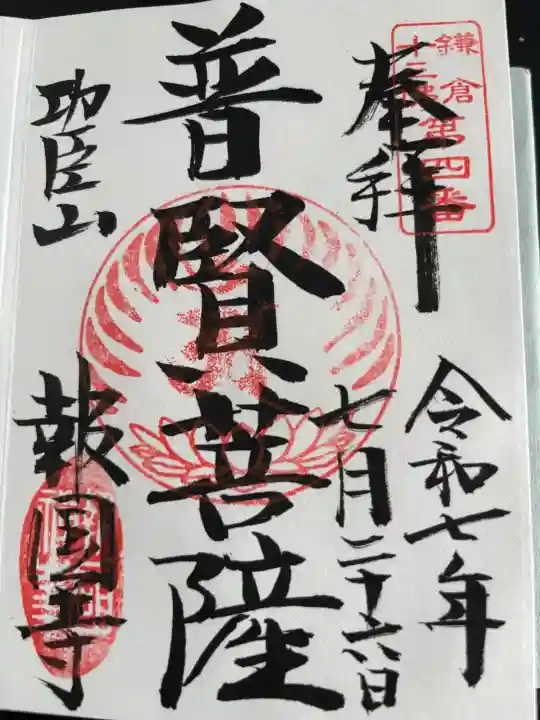 鎌倉
十三佛
第四番
奉拝
令和七年
七月二十六日
普賢菩薩
功臣山
報国寺